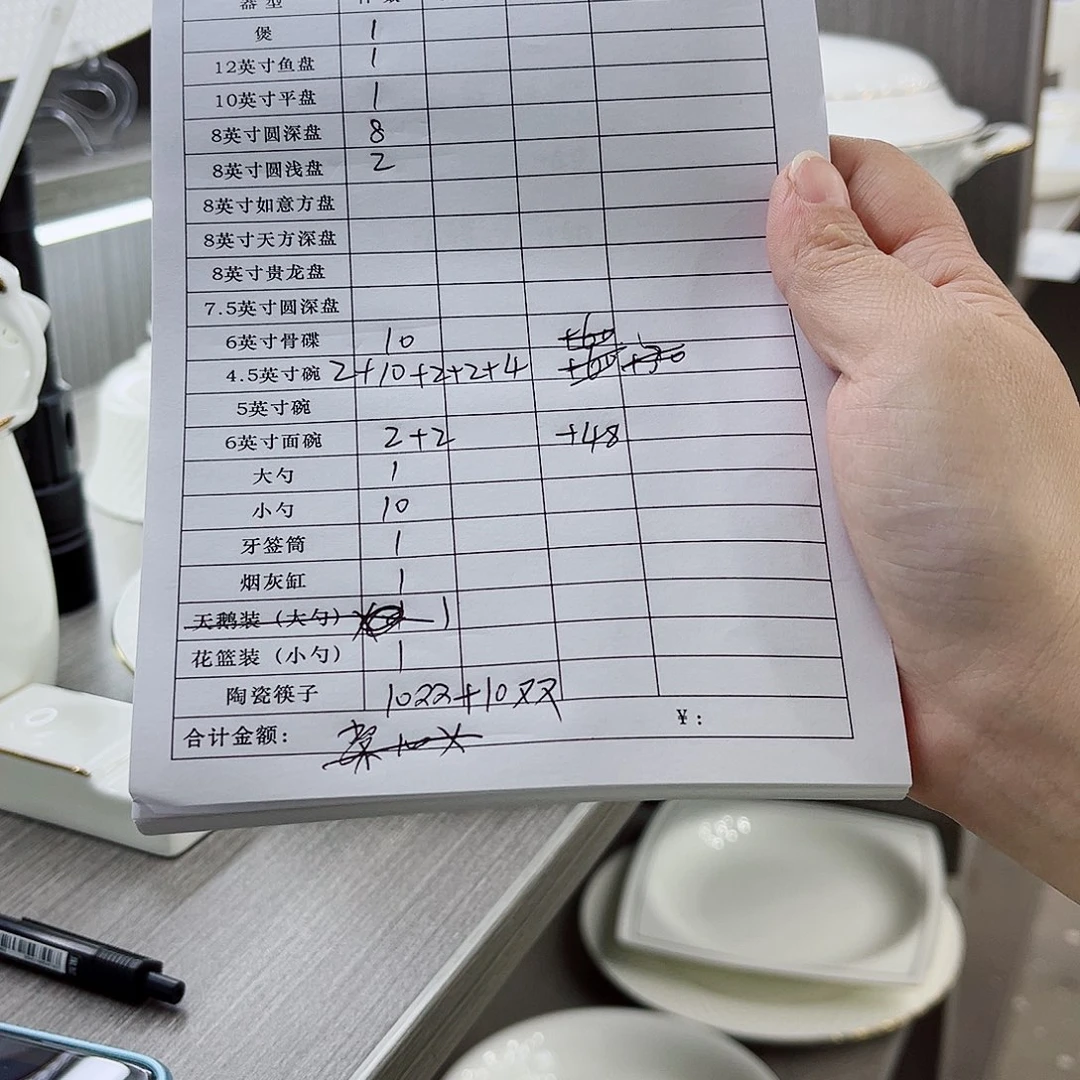 器型 件数
煲 1
12英寸鱼盘 1
10英寸平盘 1
8英寸圆深盘 8
8英寸圆浅盘 2
8英寸如意方盘
8英寸天方深盘
8英寸贵龙盘
7.5英寸圆深盘
6英寸骨碟 10 +60
4.5英寸碗 2+10+2+2+4
5英寸碗
6英寸面碗 2+2 +48
大勺 1
小勺 10
牙签筒 1
烟灰缸 1
天鹅装（大勺） 1
花篮装（小勺） 1
陶瓷筷子 10双+10双
合计金额： ¥：